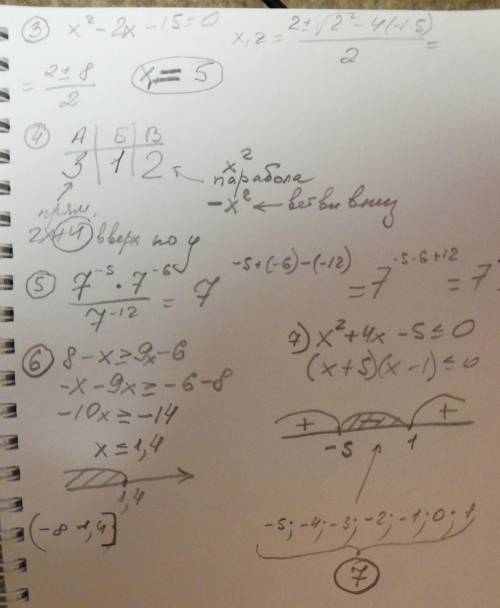 ③ x² - 2x - 15 = 0
x₁,₂ = (2 ± √(2² - 4(-15))) / 2 =
= (2 ± 8) / 2   x₁ = 5
④ А | Б | В
3 | 1 | 2
x² парабола
-x² ← ветви вниз
прям.
2x+4 вверх по y
⑤ (7⁻⁵ · 7⁻⁶) / 7⁻¹² = 7^(-5+(-6)-(-12)) = 7^(-5-6+12) = 7
⑥ 8 - x ≥ 9x - 6
-x - 9x ≥ -6 - 8
-10x ≥ -14
x ≤ 1,4
1,4
(-8 1,4]
7) x² + 4x - 5 ≤ 0
(x+5)(x-1) ≤ 0
+ +
-5 1
-5; -4; -3; -2; -1; 0; 1
7